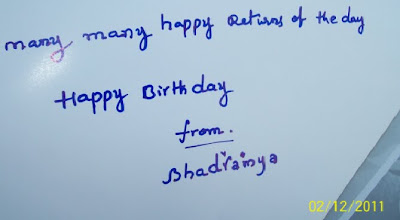 many many happy Returns of the day
Happy Birthday
from.
Bhadramya
02/12/2011